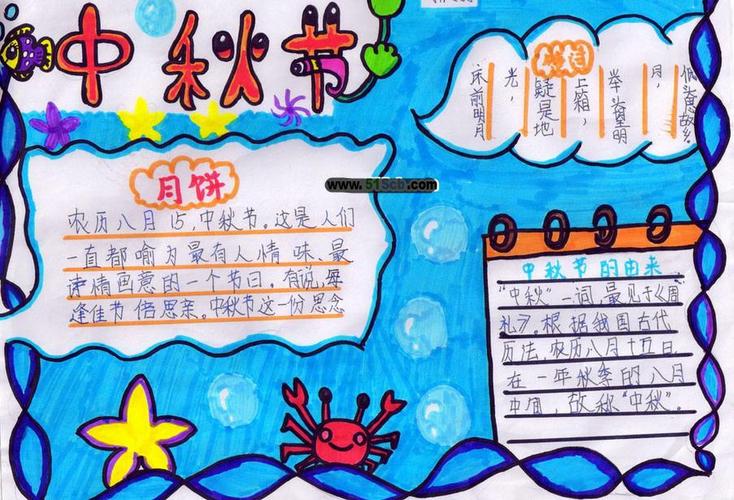 中秋节
床前明月
光，
疑是地
上箱，
举头望明
月，
低头思故乡.
www.515cb.com
月饼
农历八月15，中秋节。这是人们
一直都喻为最有人情味、最
诗情画意的一个节日。有说，每
逢佳节倍思亲。中秋节这一份思念
中秋节的由来
“中秋”一词，最见于《周
礼》。根据我国古代
历法，农历八月十五日，
在一年秋季的八月
中间，故秋“中秋”。